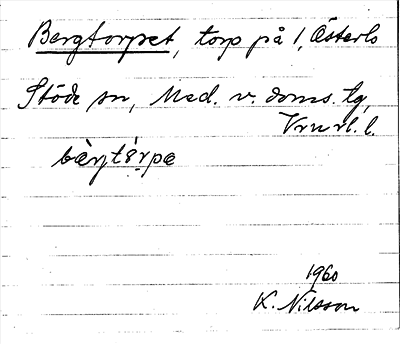 Bergtorpet, torp på 1, Österlo
Stöde sn, Med. v. doms. tg,
Vrnrl. l.
bærjtórpæ
1960
K. Nilsson